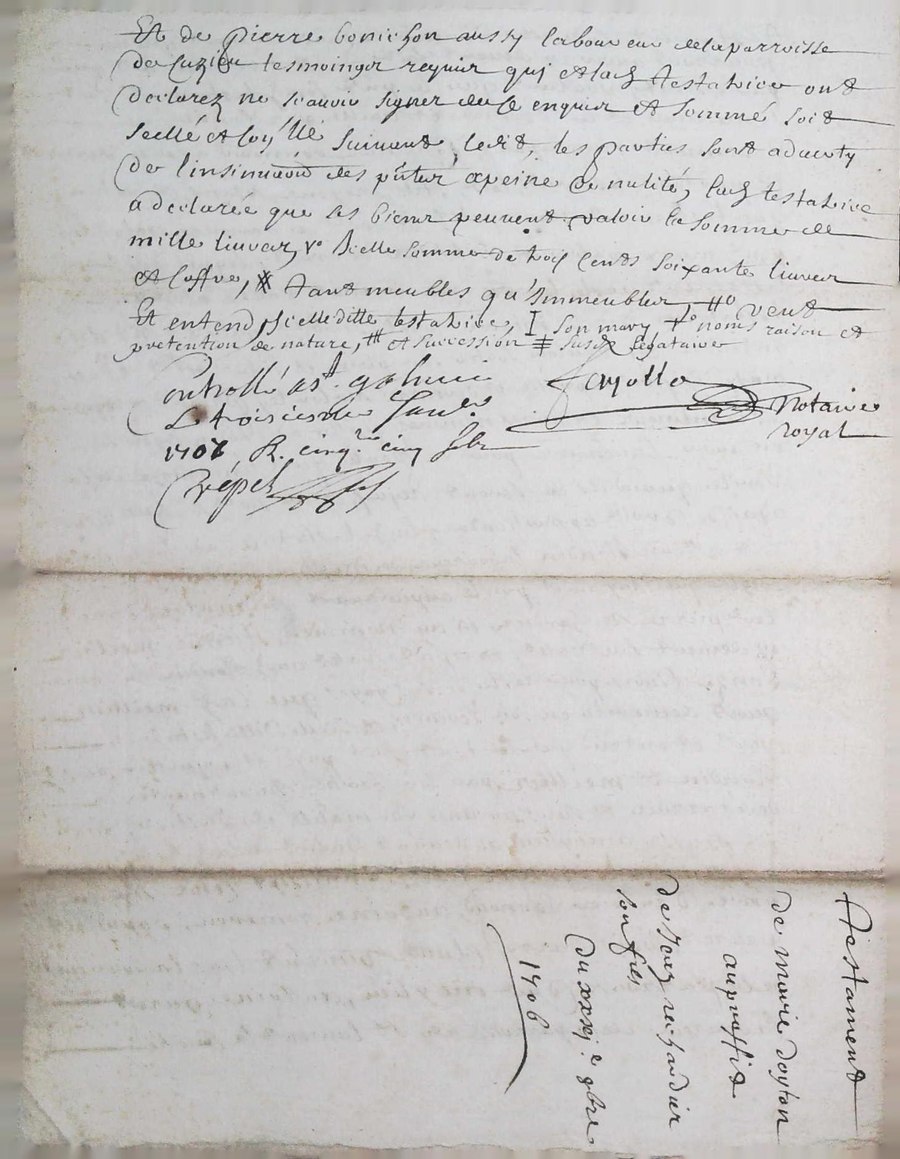 Et de pierre bonichon aussy laboureur de la parroisse
de Cuzieu tesmoinger requir qui et lad testatrice ont
declarez ne scavoir signer de ce enquir et sommé soit
scellé et suivant ledit, les parties sont adverty
de l'insinuaon des pntes a peine de nulité, lad testatrice
a declarée que ses biens peuvent valoir la somme de
mille livres, icelle somme de trois cents soixante livres
et coffre, tant meubles qu'Immeubles, veut
Et entend, icelle ditte testatrice, son mary, noms raison et
pretention de nature, et succession legataire
Controllé a st galmier
Le troisiesme Janer
1707 R. cinq cinq sols
Crépet
fayolle
Notaire
royal
Testament
de marie doyton
au proffit
de Jeay rechardier
son fils
du xxxj.e 9bre
1706